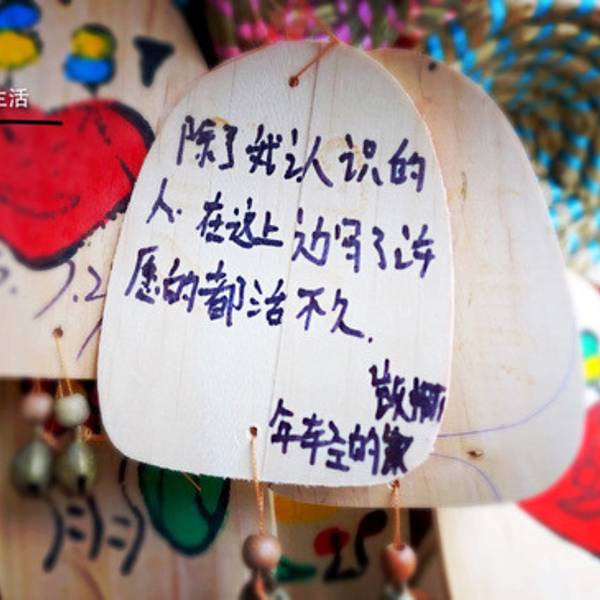 生活
除了我认识的
人.在这上边写了许
愿的都活不久.
年轻的